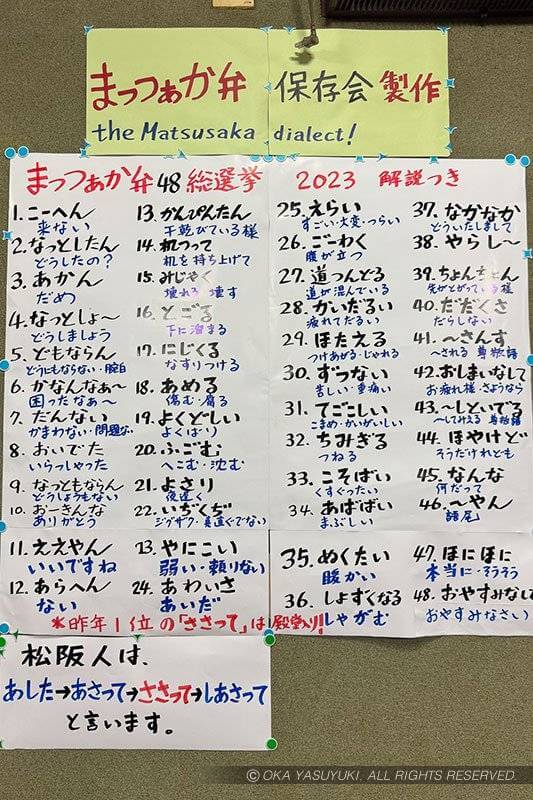 まっつぁか弁 保存会 製作
the Matsusaka dialect!
まっつぁか弁48総選挙 2023 解説つき
1. こーへん
来ない
2. なっとしたん
どうしたの?
3. あかん
だめ
4. なっとしょ〜
どうしましょう
5. どもならん
どうにもならない・腕白
6. かなんなぁ〜
困ったなぁ〜
7. だんない
かまわない・問題ない
8. おいでた
いらっしゃった
9. なっともならん
どうしようもない
10. おーきんな
ありがとう
11. ええやん
いいですね
12. あらへん
ない
13. かんぴんたん
干乾びている様
14. 机つって
机を持ち上げて
15. みじゃく
壊れる・壊す
16. とごる
下に溜まる
17. にじくる
なすりつける
18. あめる
傷む・腐る
19. よくどしい
よくばり
20. ふごむ
へこむ・沈む
21. よさり
夜遅く
22. いぢくぢ
ジグザグ・真直ぐでない
23. やにこい
弱い・頼りない
24. あわいさ
あいだ
25. えらい
すごい・大変・つらい
26. ごーわく
腹が立つ
27. 道つんどる
道が混んでいる
28. かいだるい
疲れてだるい
29. ほたえる
つけあがる・じゃれる
30. ずつない
苦しい・重痛い
31. てごこしい
こまめ・かいがいしい
32. ちみぎる
つねる
33. こそばい
くすぐったい
34. あばばい
まぶしい
35. ぬくたい
暖かい
36. しょずくなる
しゃがむ
37. なかなか
どういたしまして
38. やらし〜
39. ちょんちょん
先がとがっている様
40. だだくさ
だらしない
41. 〜さんす
〜される 尊敬語
42. おしまいなして
お疲れ様・さようなら
43. 〜しといでる
〜してみえる 尊敬語
44. ほやけど
そうだけれども
45. なんな
何だって
46. 〜やん
語尾
47. ほにほに
本当に・そうそう
48. おやすみなして
おやすみなさい
*昨年1位の「ささって」は殿堂入り!
松阪人は、
あした→あさって→ささって→しあさって
と言います。
© OKA YASUYUKI. ALL RIGHTS RESERVED.